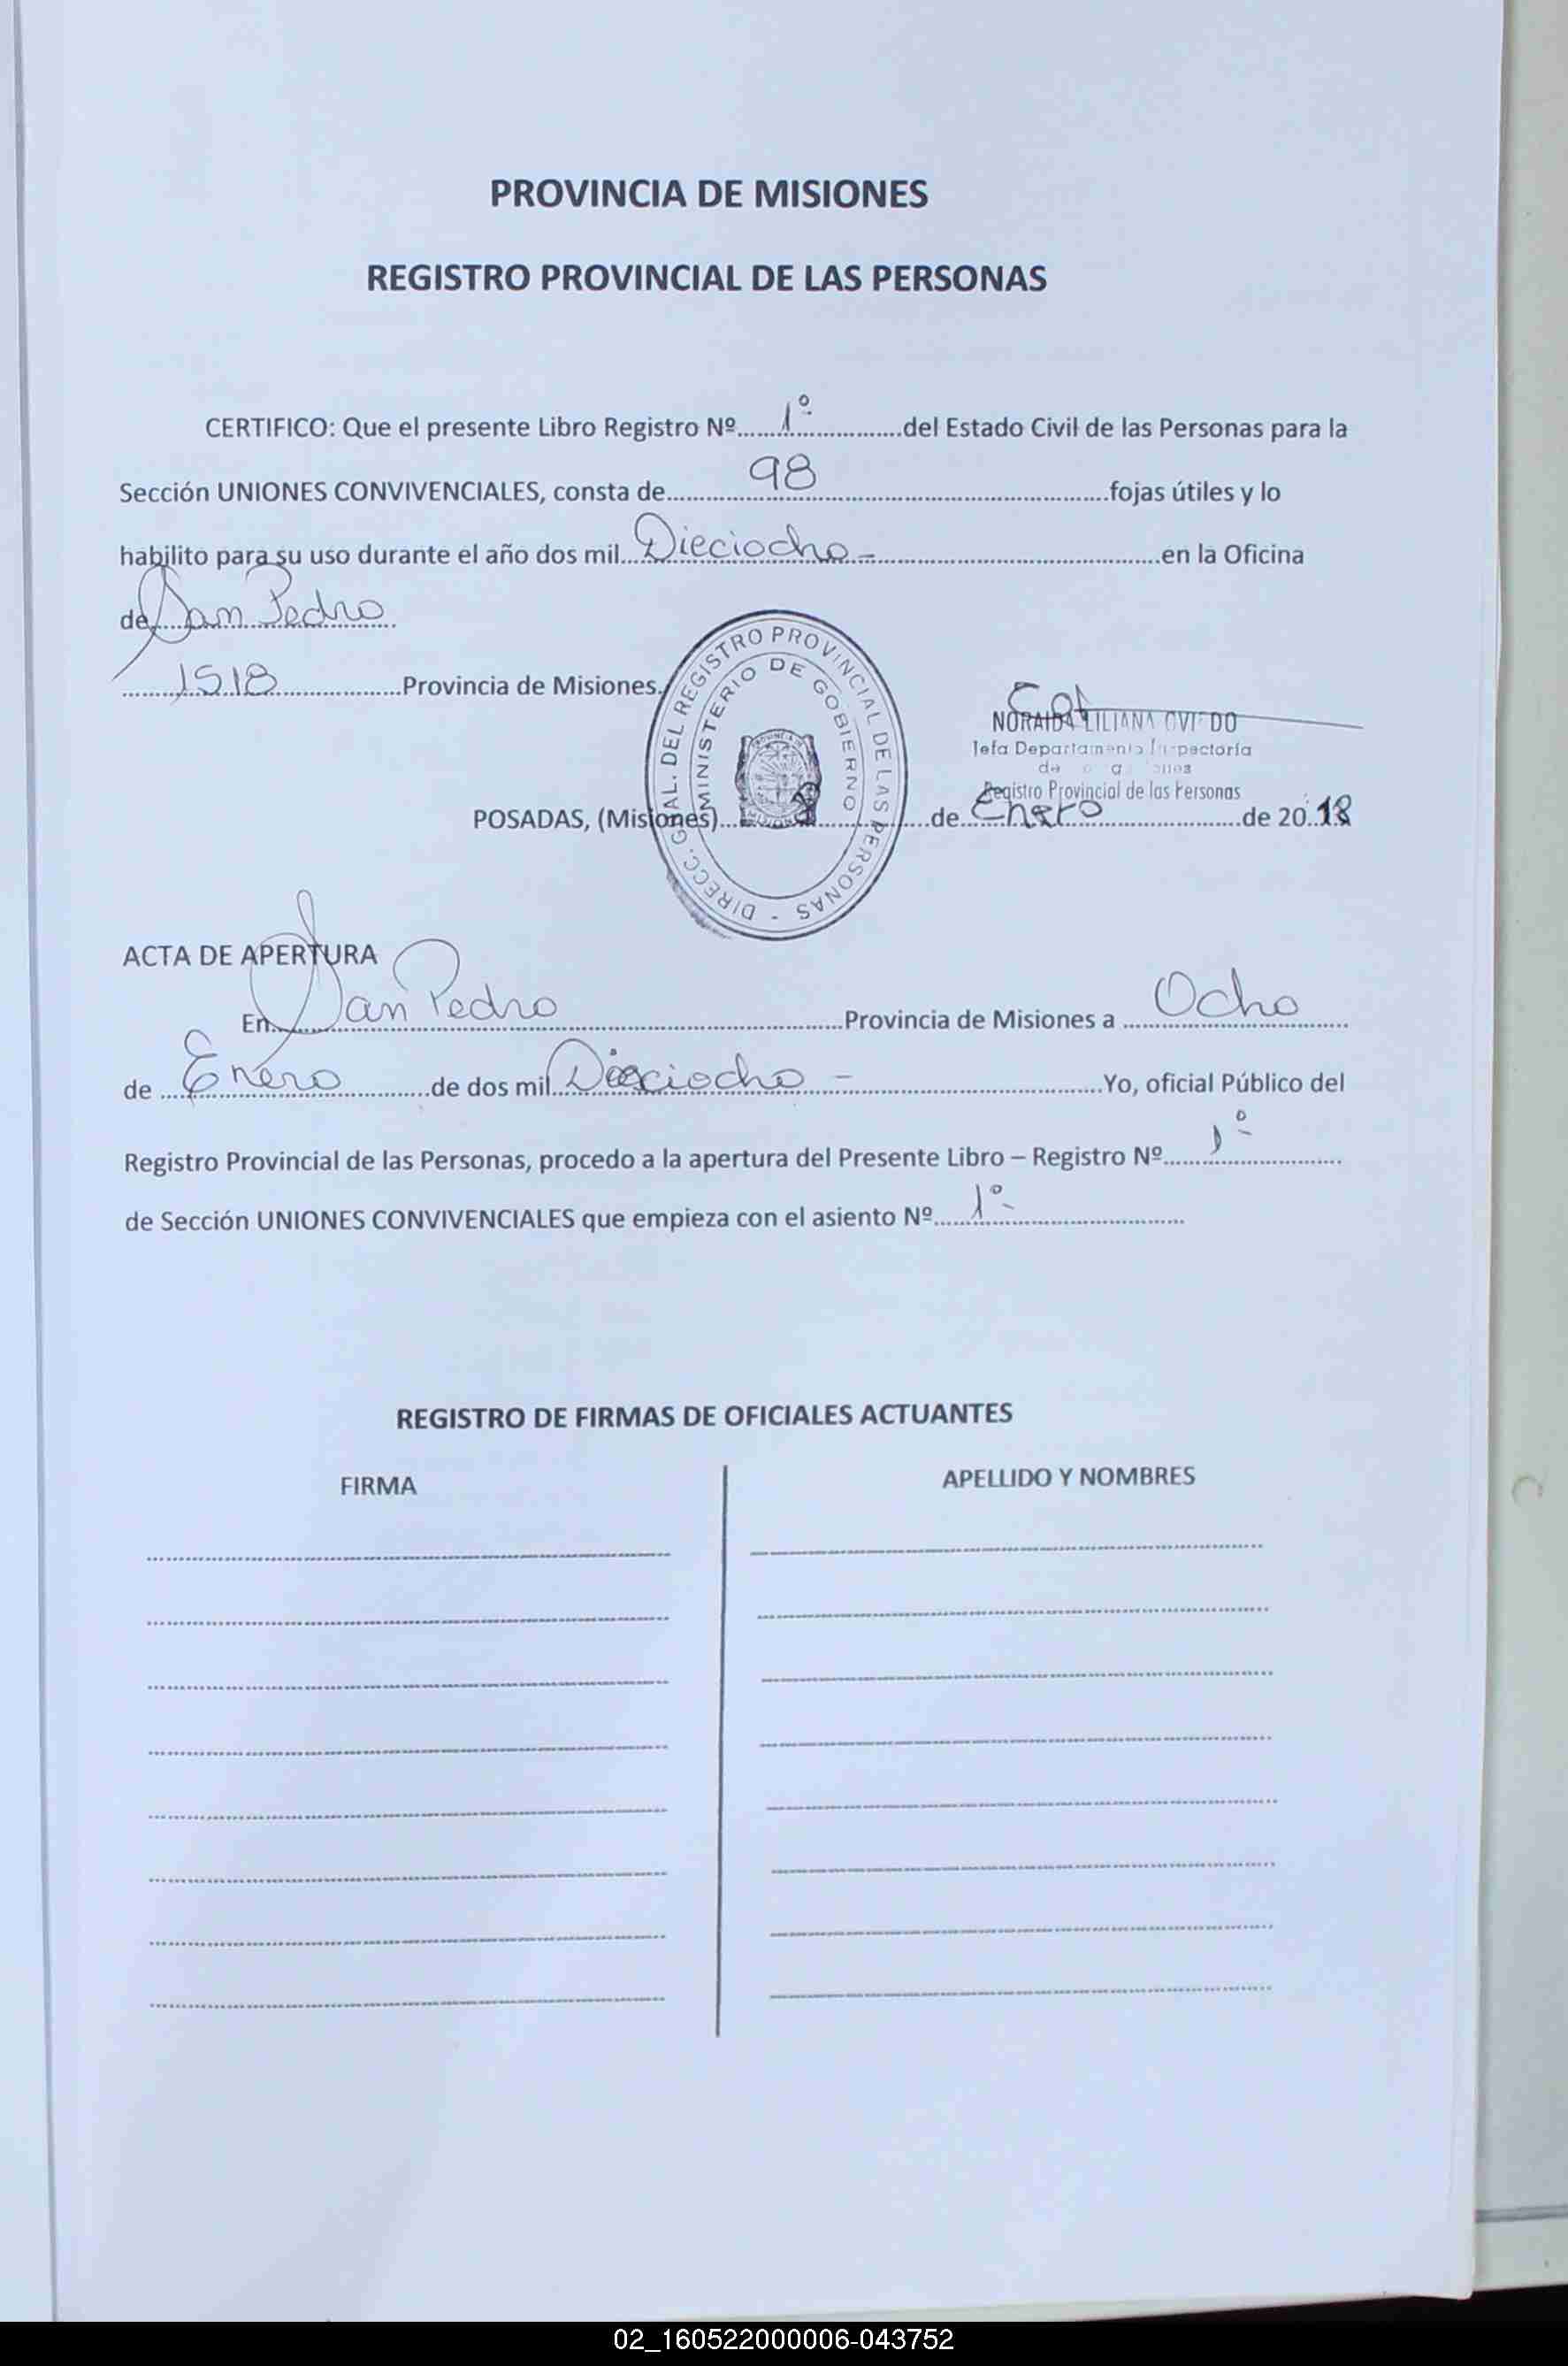 PROVINCIA DE MISIONES
REGISTRO PROVINCIAL DE LAS PERSONAS
CERTIFICO: Que el presente Libro Registro Nº 1º del Estado Civil de las Personas para la
Sección UNIONES CONVIVENCIALES, consta de 98 fojas útiles y lo
habilito para su uso durante el año dos mil Dieciocho.- en la Oficina
de San Pedro
1518 Provincia de Misiones.
DIRECC. GRAL. DEL REGISTRO PROVINCIAL DE LAS PERSONAS -
MINISTERIO DE GOBIERNO
NORAIDA LILIANA OVIEDO
Jefa Departamento Inspectoría
Registro Provincial de las Personas
POSADAS, (Misiones) de Enero de 2018
ACTA DE APERTURA
En San Pedro Provincia de Misiones a Ocho
de Enero de dos mil Dieciocho - Yo, oficial Público del
Registro Provincial de las Personas, procedo a la apertura del Presente Libro – Registro Nº 1º-
de Sección UNIONES CONVIVENCIALES que empieza con el asiento Nº 1º-
REGISTRO DE FIRMAS DE OFICIALES ACTUANTES
FIRMA APELLIDO Y NOMBRES
02_160522000006-043752